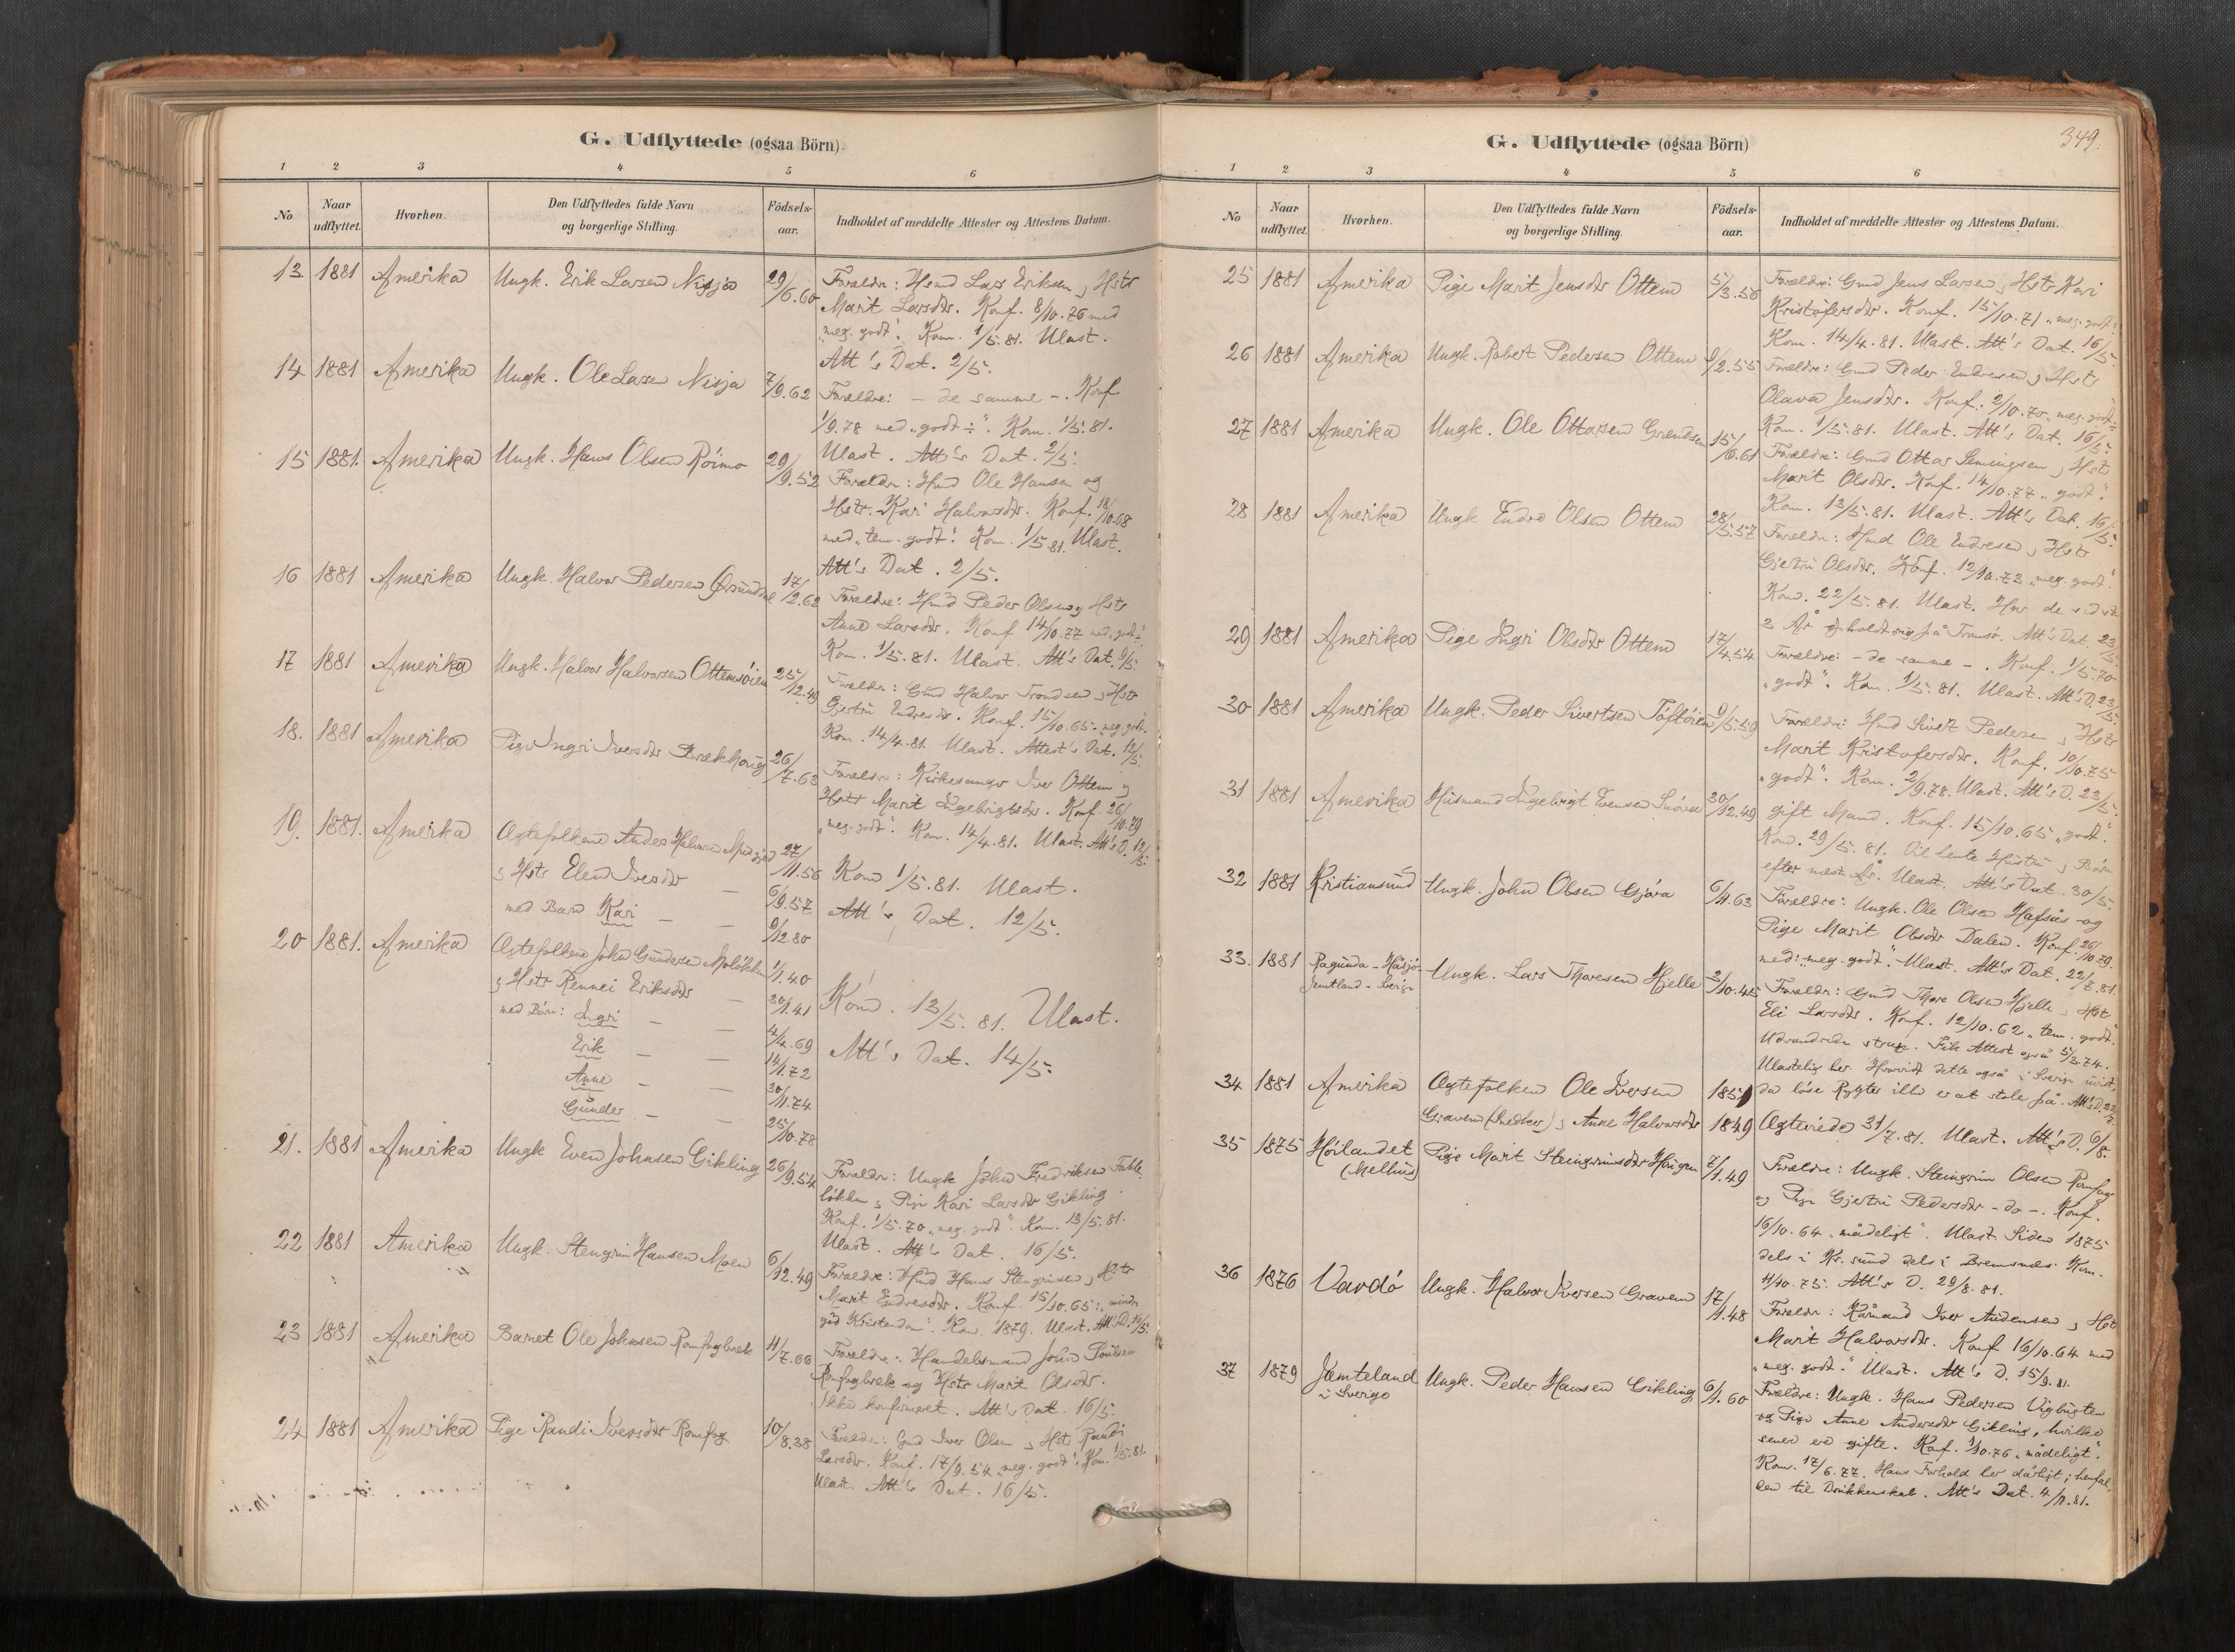 G. Udflyttede (ogsaa Börn).
1 2 3 4 5 6
No Naar udflyttet. Hvorhen. Den Udflyttedes fulde Navn og borgerlige Stilling. Födsels-aar. Indholdet af meddelte Attester og Attestens Datum.
13. 1881 Amerika Ungk. Erik Larsen Nisja 29/6.60 Forældre: Hmd Lars Eriksen og Hstr
Marit Larsdtr. Konf. 8/10.76 med
"meg. godt". Kom. 1/5.81. Ulast.
Att's Dat. 2/5.
14 1881 Amerika Ungk. Ole Larsen Nisja 7/9.62 Forældre: - de samme -. Konf
1/9.78 med "godt ÷". Kom. 1/5.81.
Ulast. Att's Dat. 2/5.
15 1881. Amerika Ungk. Hans Olsen Röimo 29/9.52 Forældre: Hmd Ole Hansen og
Hstr. Kari Halvorsdtr. Konf. 18/10.68
med "tem. godt". Kom. 1/5.81. Ulast.
Att's Dat. 2/5.
16 1881 Amerika Ungk. Halvor Pedersen 17/2.62 Forældre: Hmd Peder Olsen og Hstr
Anne Larsdtr. Konf 14/10.77 med "godt ÷"
Kom. 1/5.81. Ulast. Att's Dat.
17 1881 Amerika Ungk. Halvor Halvorsen Ottemsöien 25/12.49 Forældre: Gmd Halvor Trondsen og Hstr
Gjertru Endresdtr. Konf. 15/10.65 "meg. godt".
Kom. 14/4.81. Ulast. Attest's Dat. 12/5.
18. 1881 Amerika Pige Ingri Iversdtr Brækhaug 26/7.63 Forældre: Kirkesanger Iver Ottem og
Hstr Marit Ingebrigtsdtr. Konf. 26/10.79
"meg. godt". Kom. 14/4.81. Ulast. Att's D. 12/5.
19. 1881. Amerika Ægtefolkene Anders Halvorsen 27/11.56
og Hstr Elen Iversdtr — 6/9.57 Kom 1/5.81. Ulast.
med Barn Kari — — 9/12.80 Att's Dat. 12/5.
20 1881. Amerika Ægtefolkene John Gundersen Moløkken 1/1.40
og Hstr Rennei Eriksdtr — 30/1.41 Kom. 13/5.81. Ulast.
med Börn: Ingri — — 4/4.69 Att's Dat. 14/5.
Erik — — 14/1.72
Anne — — 30/11.74
Gunder — — 25/10.78
21. 1881 Amerika Ungk Even Johnsen Gikling 26/9.54 Forældre: Ungk John Fredriksen Fahle-
løkken og Pige Kari Larsdtr Gikling.
Konf. 1/5.70 "meg. godt". Kom. 13/5.81.
Ulast. Att's Dat. 16/5.
22 1881 Amerika Ungk. Stengrim Hansen Moen 6/12.49 Forældre: Hmd Hans Stengrimsen og Hstr
Marit Endresdtr. Konf. 15/10.65: "mindre
god Kristendom". Kom. 1879. Ulast. Att's D. 16/5.
23 1881 Amerika Barnet Ole Johnsen Romfogbræk 11/7.66 Forældre: Handelsmand John
Romfogbræk og Hstr Marit Olsdtr.
Ikke konfirmeret. Att's Dat. 16/5.
24 1881 Amerika Pige Randi Iversdtr Romfog 10/8.38 Forældre: Gmd Iver Olsen og Hstr Randi
Larsdtr. Konf. 17/9.54 "meg. godt". Kom. 1/5.81.
Ulast. Att's Dat. 16/5.
349.
G. Udflyttede (ogsaa Börn)
1 2 3 4 5 6
No Naar udflyttet. Hvorhen. Den Udflyttedes fulde Navn og borgerlige Stilling. Födsels-aar. Indholdet af meddelte Attester og Attestens Datum.
25 1881 Amerika Pige Marit Jensdtr Ottem 5/3.56 Forældre: Gmd Jens Larsen og Hstr Kari
Kristofersdtr. Konf. 15/10.71 "meg. godt".
Kom. 14/4.81. Ulast. Att's Dat. 16/5.
26 1881 Amerika Ungk. Robert Pedersen Ottem 9/2.55 Forældre: Gmd Peder Endresen og Hstr
Olava Jensdtr. Konf: 2/10.70 "meg. godt ÷"
Kom. 1/5.81. Ulast. Att's Dat. 16/5.
27 1881 Amerika Ungk. Ole Ottarsen Grendsen 15/6.61 Forældre: Gmd Ottar Semingsen og Hstr
Marit Olsdtr. Konf. 14/10.77 "godt".
Kom. 13/5.81. Ulast. Att's Dat. 16/5.
28 1881 Amerika Ungk Endre Olsen Ottem 28/5.57 Forældre: Hmd Ole Endresen og Hstr
Gjertru Olsdtr. Konf. 12/10.73 "meg. godt".
Kom. 22/5.81. Ulast. Har de sidste
2 År opholdt sig på Tromsö. Att's Dat. 23/5.
29 1881 Amerika Pige Ingri Olsdtr Ottem 17/4.54 Forældre: - de samme -. Konf. 1/5.70
"godt". Kom. 1/5.81. Ulast. Att's D. 23/5.
30 1881 Amerika Ungk. Peder Sivertsen Töftöien 9/5.59 Forældre: Hmd Sivert Pedersen og Hstr
Marit Kristofersdtr. Konf. 10/10.75
"godt". Kom. 2/9.78. Ulast. Att's D. 23/5.
31 1881 Amerika Husmand Ingebrigt Evensen Snöva 30/12.49 gift Mand. Konf. 15/10.65 "godt".
Kom. 29/5.81. Vil hente Hustru og Börn
efter næste År. Ulast. Att's Dat. 30/5.
32 1881 Kristiansund Ungk. John Olsen Gjöra 6/4.63 Forældre: Ungk. Ole Olsen Hafsås og
Pige Marit Olsdtr Dalen. Konf. 26/10.79.
med: "meg. godt". Ulast. Att's Dat. 22/7.81.
33. 1881 Ragunda - Håsjö Jemtland - Sverige Ungk. Lars Thoresen Hjelle 3/10.45 Forældre: Gmd Thore Olsen Hjelle og Hstr
Eli Larsdtr. Konf. 12/10.62 "tem. godt".
Udvandrede strax. Fik Attest også 5/3.74.
Ulastelig her. Hvorvidt dette også i Sverige uvist,
da löse Rygter ille er at stole på. Att's D. 22/7.
34 1881 Amerika Ægtefolkene Ole Iversen 1851
Gravem (Snedker) og Anne Halvorsdtr 1849 Ægteviede 31/7.81. Ulast. Att's D. 6/8.
35 1875 Höilandet (Melhus) Pige Marit Steingrimsdtr Haugen 7/1.49 Forældre: Ungk. Steingrim Olsen Romfog
og Pige Gjertru Pedersdtr - do -. Konf.
16/10.64 "mådeligt". Ulast. Siden 1875
dels i Kr.sund dels i Bremsnes. Kom.
11/10.75. Att's D. 29/8.81.
36 1876 Vardö Ungk. Halvor Iversen Gravem 17/1.48 Forældre: Kårmand Iver Audensen og Hst
Marit Halvorsdtr. Konf 16/10.64 med
"meg. godt." Ulast. Att's D. 15/9.81.
37 1879 Jæmteland i Sverige Ungk. Peder Hansen Gikling 6/1.60 Forældre: Ungk. Hans Pedersen
og Pige Anne Andersdtr Gikling, hvilke
senere ere gifte. Konf. 1/10.76 "mådeligt".
Kom. 17/6.77. Hans Forhold her dårligt; henfal-
den til Drikkenskab. Att's Dat. 4/11.81.